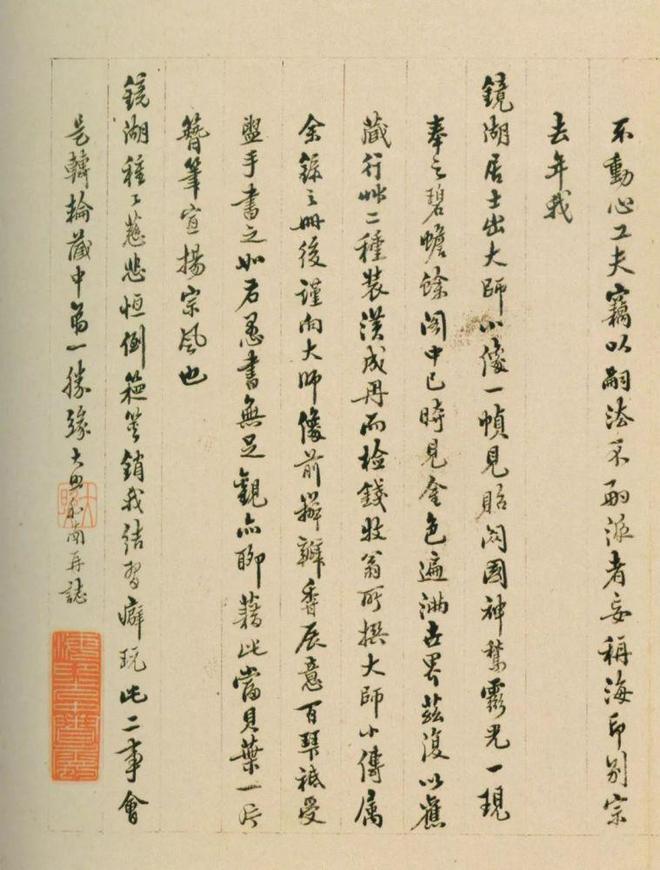 不動心工夫竊以嗣法不嗣派者妄稱海印別宗
去年我
鏡湖居士出大師小像一幀見貽國神靈光一現
奉之碧蟾餘閣中已時見金色遍滿世界茲復以舊
藏行草二種裝潢成冊而檢錢牧翁所撰大師小傳属
余錄之冊後謹向大師像前瓣香展意百拜祗受
盥手書之如右愚書無足觀亦聊藉此當貝葉一片
簪筆宣揚宗風也
鏡湖種種慈悲恒倒銷我結習癖玩此二事會
是轉輪藏中第一勝緣大照和南再誌